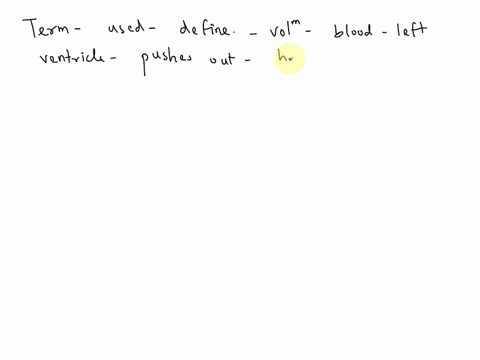 Term - used - define. - volᵐ - blood - left
ventricle - pushes out - h.